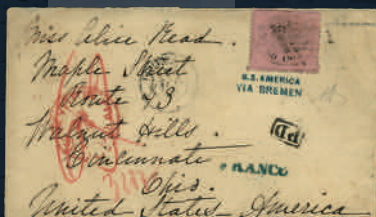 Miss Alice Read.
Maple Street
Route 43
Walnut Hills.
Cincinnati
Ohio.
United States America
U.S. AMERICA
VIA BREMEN
PD
FRANCO